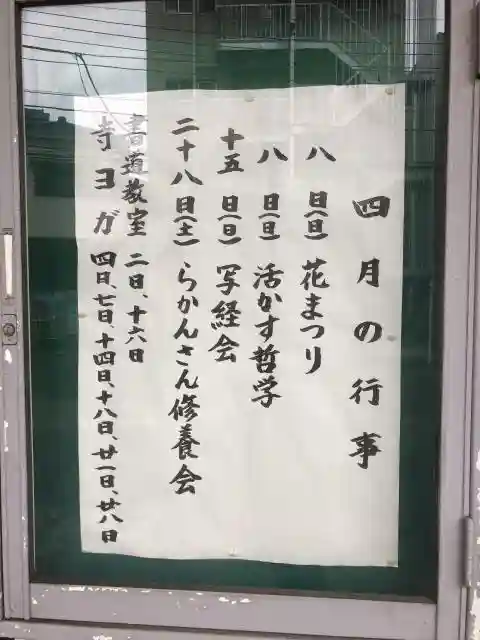 四月の行事
八日(日) 花まつり
八日(日) 活かす哲学
十五日(日) 写経会
二十八日(土) らかんさん修養会
書道教室 二日、十六日
寺ヨガ 四日、七日、十四日、十八日、廿一日、廿八日